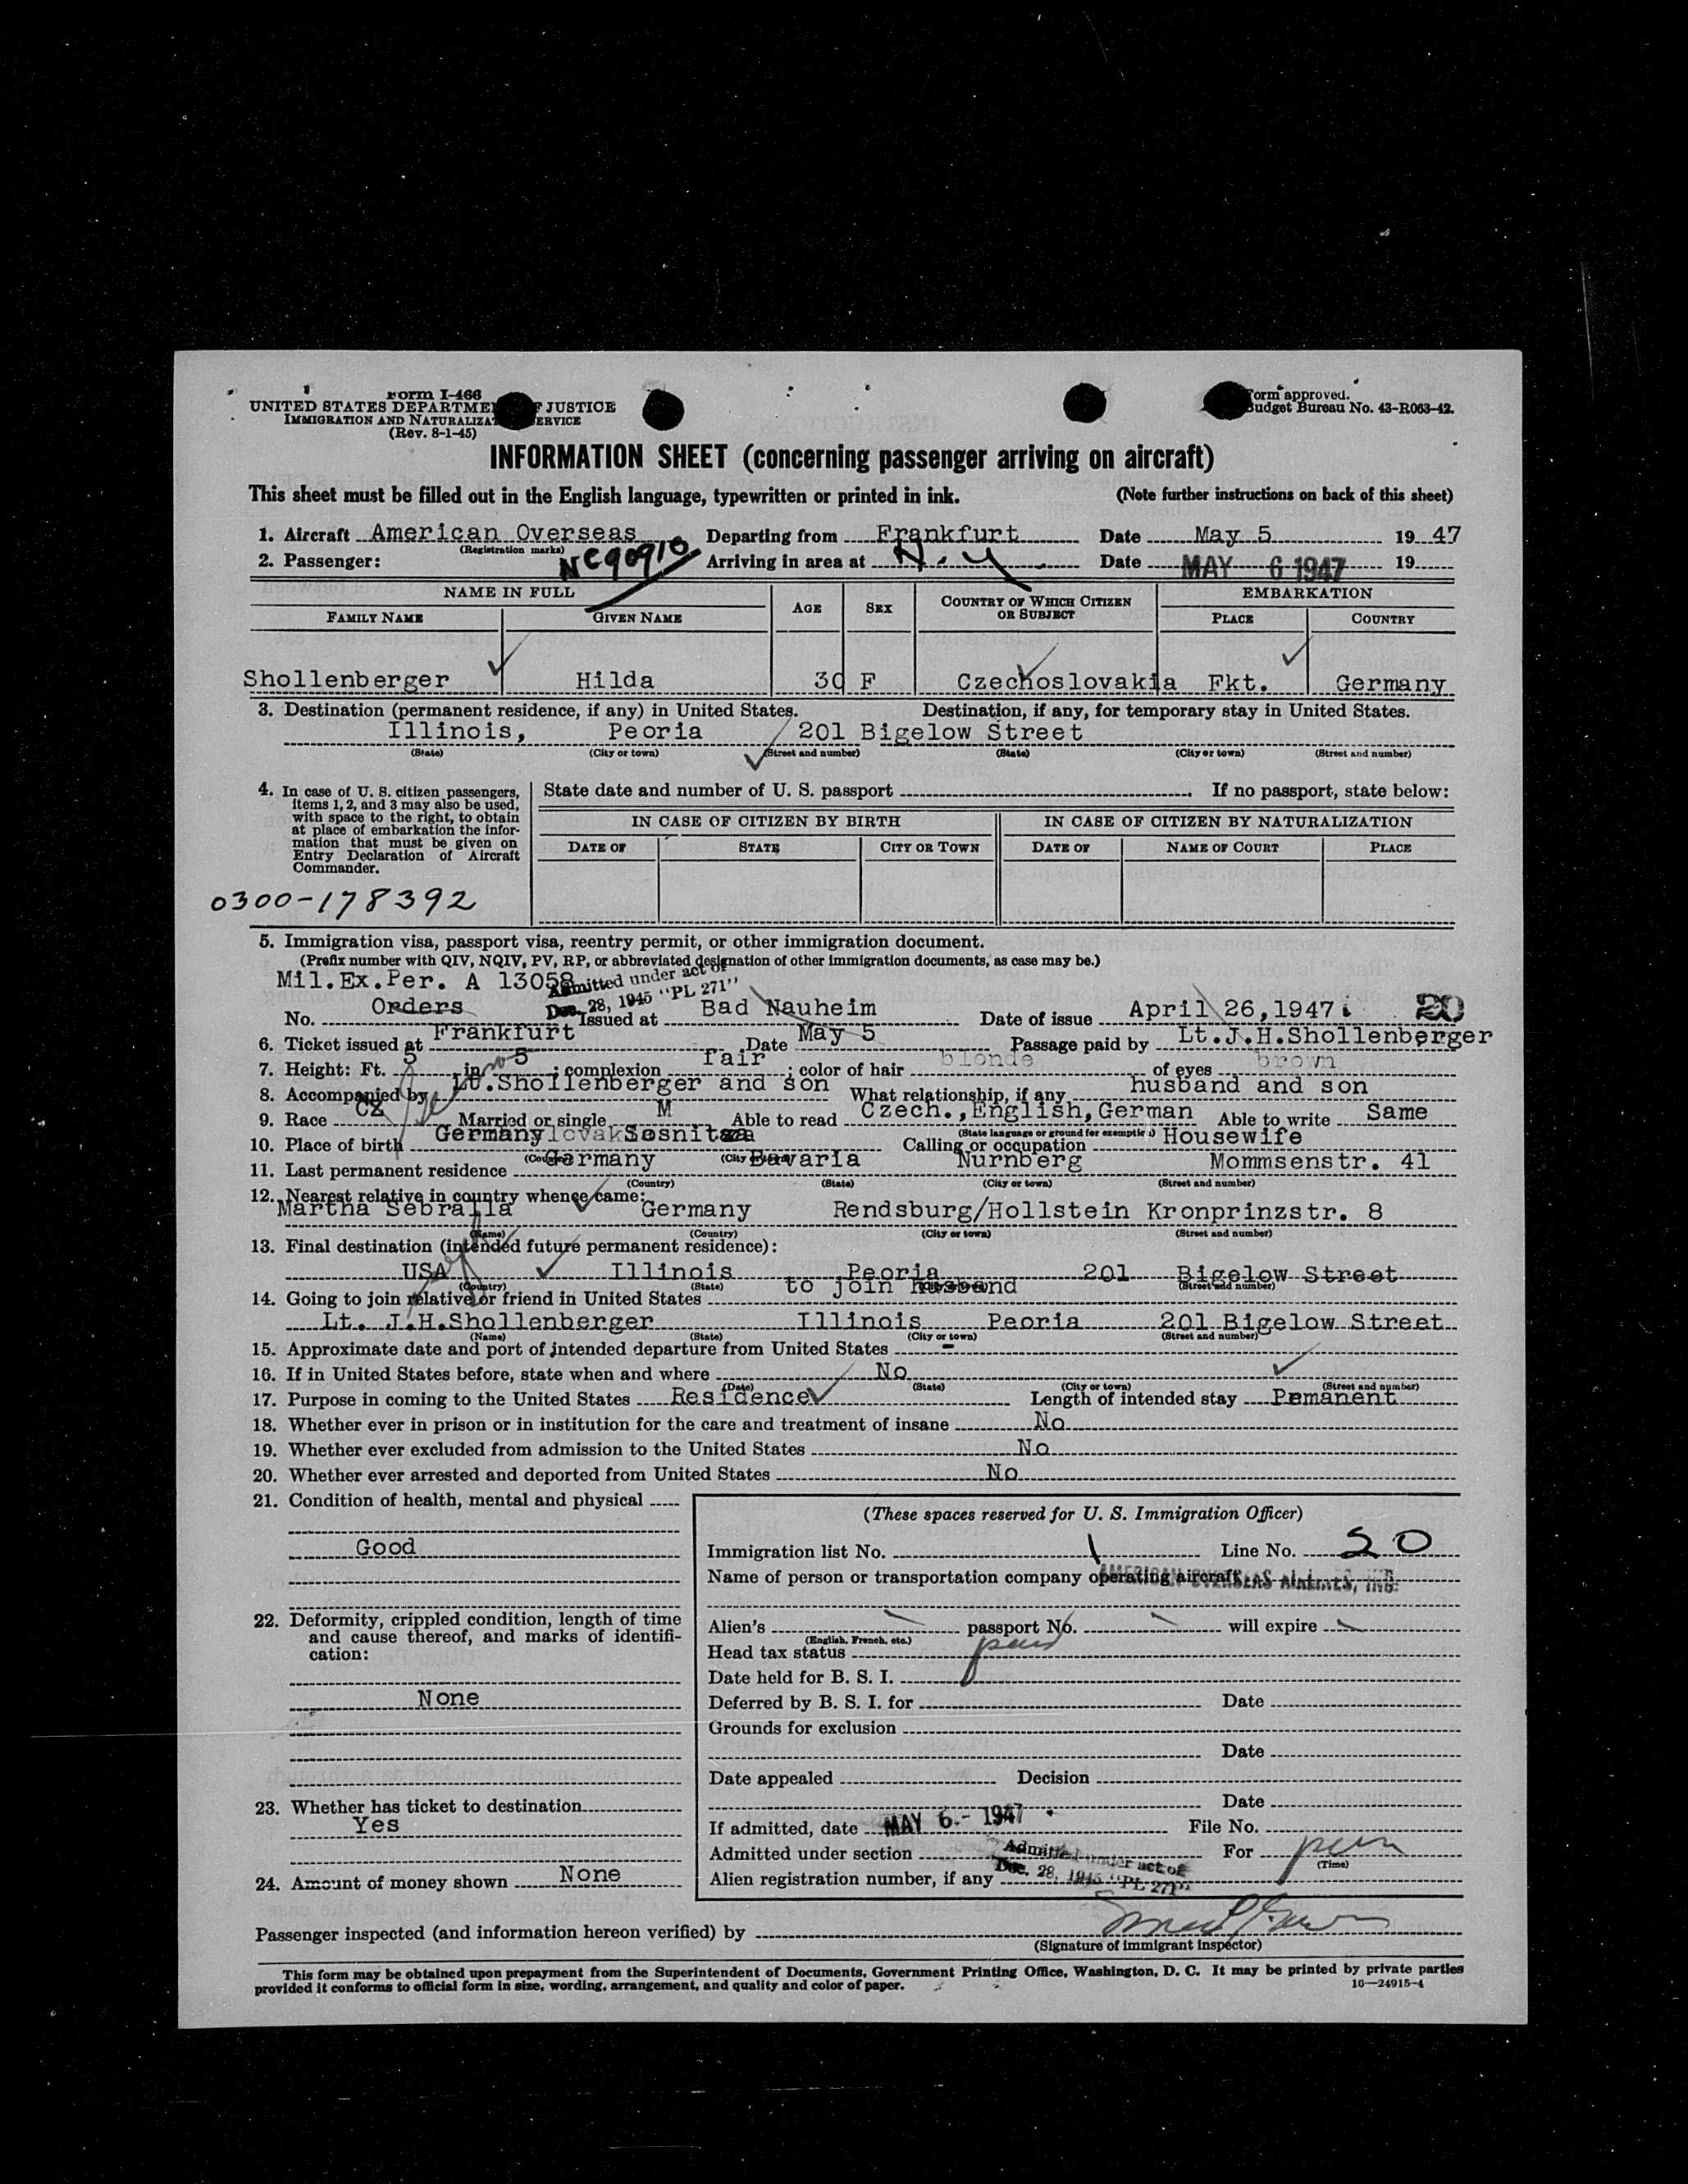 Form I-466
UNITED STATES DEPARTMENT OF JUSTICE
IMMIGRATION AND NATURALIZATION SERVICE
(Rev. 8-1-45)
Form approved.
Budget Bureau No. 43-R063-42.
INFORMATION SHEET (concerning passenger arriving on aircraft)
This sheet must be filled out in the English language, typewritten or printed in ink. (Note further instructions on back of this sheet)
1. Aircraft American Overseas Departing from Frankfurt Date May 5 1947
(Registration marks) NC90910
2. Passenger: Arriving in area at N.Y. Date MAY 6 1947 19
NAME IN FULL AGE SEX COUNTRY OF WHICH CITIZEN OR SUBJECT EMBARKATION
FAMILY NAME GIVEN NAME PLACE COUNTRY
Shollenberger Hilda 30 F Czechoslovakia Fkt. Germany
3. Destination (permanent residence, if any) in United States. Destination, if any, for temporary stay in United States.
Illinois, Peoria 201 Bigelow Street
(State) (City or town) (Street and number) (State) (City or town) (Street and number)
4. In case of U. S. citizen passengers, items 1, 2, and 3 may also be used, with space to the right, to obtain at place of embarkation the information that must be given on Entry Declaration of Aircraft Commander.
State date and number of U. S. passport If no passport, state below:
IN CASE OF CITIZEN BY BIRTH IN CASE OF CITIZEN BY NATURALIZATION
DATE OF STATE CITY OR TOWN DATE OF NAME OF COURT PLACE
0300-178392
5. Immigration visa, passport visa, reentry permit, or other immigration document.
(Prefix number with QIV, NQIV, PV, RP, or abbreviated designation of other immigration documents, as case may be.)
Mil.Ex.Per. A 13058 Admitted under act of
Dec. 28, 1945 "PL 271"
No. Orders Issued at Bad Nauheim Date of issue April 26,1947 20
6. Ticket issued at Frankfurt Date May 5 Passage paid by Lt.J.H.Shollenberger
7. Height: Ft. 5 in. 5 ; complexion fair ; color of hair blonde of eyes brown
8. Accompanied by Lt.Shollenberger and son What relationship, if any husband and son
9. Race Cz Married or single M Able to read Czech.,English,German Able to write Same
(State language or ground for exemption)
10. Place of birth Germany Sosnitza Calling or occupation Housewife
(Country) (City or town)
11. Last permanent residence Germany Bavaria Nurnberg Mommsenstr. 41
(Country) (State) (City or town) (Street and number)
12. Nearest relative in country whence came:
Martha Sebralla Germany Rendsburg/Hollstein Kronprinzstr. 8
(Name) (Country) (City or town) (Street and number)
13. Final destination (intended future permanent residence):
USA Illinois Peoria 201 Bigelow Street
(Country) (State) (Street and number)
14. Going to join relative or friend in United States to join husband
Lt. J.H.Shollenberger Illinois Peoria 201 Bigelow Street
(Name) (State) (City or town) (Street and number)
15. Approximate date and port of intended departure from United States -
16. If in United States before, state when and where No
(Date) (State) (City or town) (Street and number)
17. Purpose in coming to the United States Residence Length of intended stay Pemanent
18. Whether ever in prison or in institution for the care and treatment of insane No
19. Whether ever excluded from admission to the United States No
20. Whether ever arrested and deported from United States No
21. Condition of health, mental and physical
Good
22. Deformity, crippled condition, length of time and cause thereof, and marks of identification:
None
23. Whether has ticket to destination
Yes
24. Amount of money shown None
(These spaces reserved for U. S. Immigration Officer)
Immigration list No. 1 Line No. 20
Name of person or transportation company operating aircraft AMERICAN OVERSEAS AIRLINES, INC.
Alien's passport No. will expire
(English, French, etc.)
Head tax status
Date held for B. S. I.
Deferred by B. S. I. for Date
Grounds for exclusion
Date
Date appealed Decision
Date
If admitted, date MAY 6 - 1947 File No.
Admitted under section Admitted under act of For perm
(Time)
Alien registration number, if any Dec. 28, 1945 "PL 271"
Passenger inspected (and information hereon verified) by
(Signature of immigrant inspector)
This form may be obtained upon prepayment from the Superintendent of Documents, Government Printing Office, Washington, D. C. It may be printed by private parties
provided it conforms to official form in size, wording, arrangement, and quality and color of paper. 16—24915-4